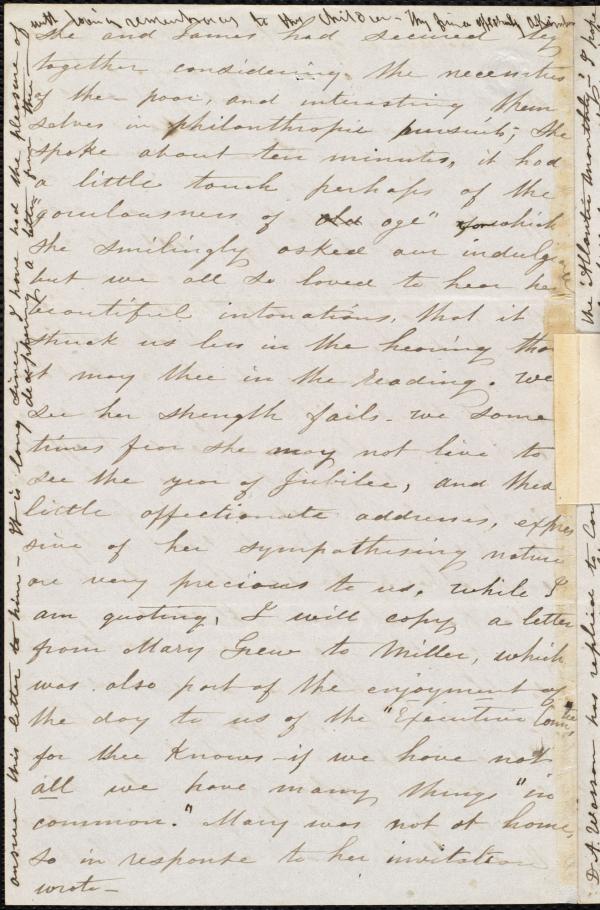 with loving remembrances to the children - Thy friend affectionately
She and James had secured by
together considering the necessities
of the poor, and interesting them
selves in philanthropic pursuits; She
spoke about ten minutes, it had
a little touch perhaps of the
"garulousness of old age" for which
she smilingly asked our indulge
but we all so loved to hear her
beautiful intonations, that it
struck us less in the hearing tha
it may thee in the reading. We
see her strength fails - we some
times fear she may not live to
see the year of Jubilee, and these
little affectionate addresses, expres
sive of her sympathising nature
are very precious to us. While I
am quoting, I will copy a letter
from Mary Grew to Miller, which
was also part of the enjoyment of
the day to us of the "Executive Comtee
for thee knows - if we have not
all we have many things "in
common." Mary was not at home,
so in response to her invitation
wrote -
answer this letter to him - It is long since I have had the pleasure of
a letter from thee
the "Atlantic Monthly" I hope
D. A. Wasson has replied to Con